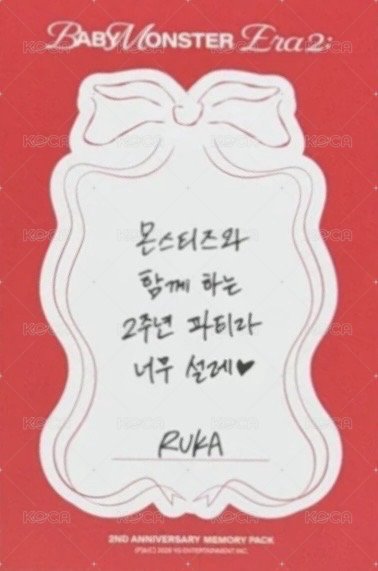 BABYMONSTER Era2:
몬스티즈와
함께 하는
2주년 파티라
너무 설레♥
RUKA
2ND ANNIVERSARY MEMORY PACK
(P)&(C) 2026 YG ENTERTAINMENT INC.